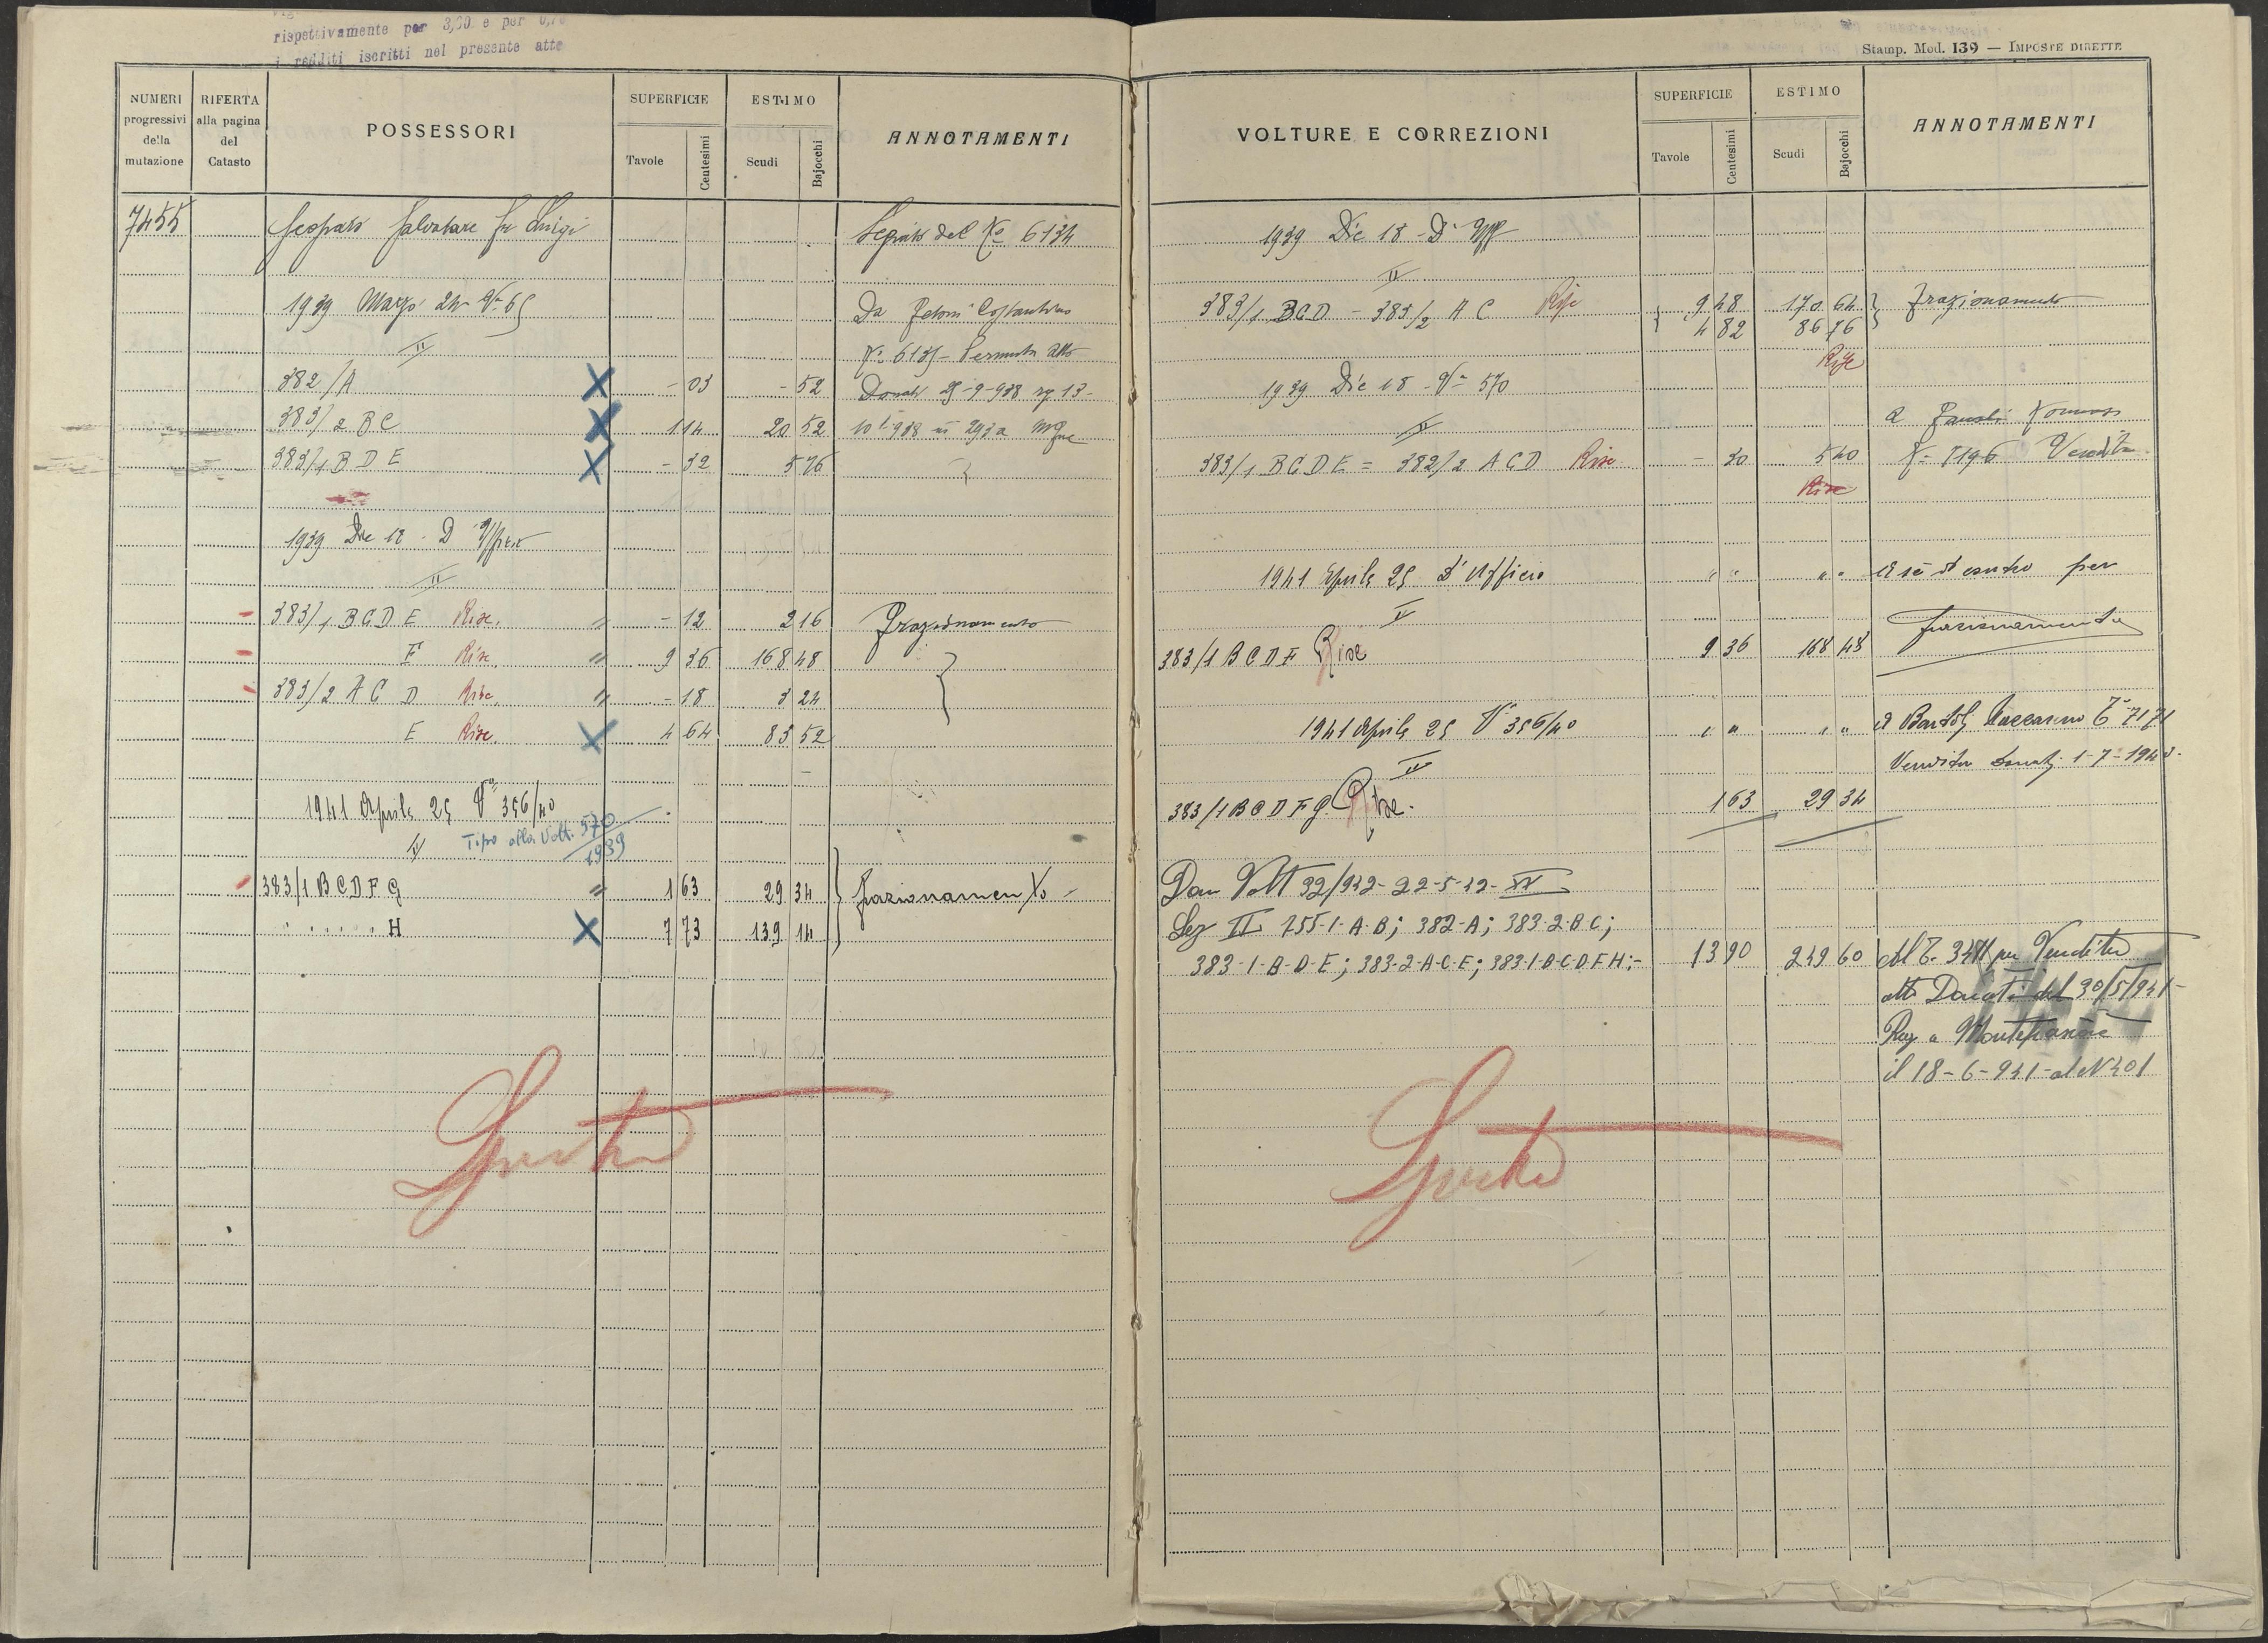 rispettivamente per 3,00 e per 0,70
i redditi iscritti nel presente atto
NUMERI progressivi della mutazione
RIFERTA alla pagina del Catasto
POSSESSORI
SUPERFICIE
Tavole
Centesimi
ESTIMO
Scudi
Bajocchi
ANNOTAMENTI
7455 Salvatore fu Luigi Seguito del No 6134
1939 Marzo 24 Va 65 Da Costantino
II
382/A X - 03 - 52 Donati 25-9-938 rg 13-
383/2 BC X 1 14 20 52
383/1 B D E X - 32 5 76
1939 Dic 18 - D'Ufficio
II
383/1 B C D E Rise. " - 12 2 16 Frazionamento
F Rise. " 9 36 168 48
383/2 A C D Rise. " - 18 3 24
E Rise. X 4 64 83 52
1941 Aprile 25 Va 356/40
II Tipo alla Volt. 570/1939
383/1 B C D F G " 1 63 29 34 frazionamento -
" " " " " H X 7 73 139 14
Spento
Stamp. Mod. 139 — IMPOSTE DIRETTE
VOLTURE E CORREZIONI
SUPERFICIE
Tavole
Centesimi
ESTIMO
Scudi
Bajocchi
ANNOTAMENTI
1939 Dic 18 - D' Uff
II
383/1 BCD - 383/2 A C Rise 9 48 170 64 frazionamento
4 82 86 76
Rise
1939 Dic 18 - Va 570
II
383/1 B C D E = 382/2 A C D Rise - 30 5 40 7196 Vendita
Rise
1941 Aprile 25 D'Ufficio " " " " A sè stesso per
II frazionamento
383/1 B C D F Rise 9 36 168 48
1941 Aprile 25 Va 356/40 " " " " A Bartoli 7171
II Vendita Donati 1-7-1940.
383/1 B C D F G. Rise. 1 63 29 34
Dom Volt 32/942-22-5-42-XX
Sez II 155-1-A-B; 382-A; 383-2-B-C;
383-1-B-D-E; 383-2-A-C-E; 383-1-B-C-D-F-H:- 13 90 249 60 Al T. per Vendita
atto Donati del 30/5/941-
Reg a
il 18-6-941-al N 401
Spento